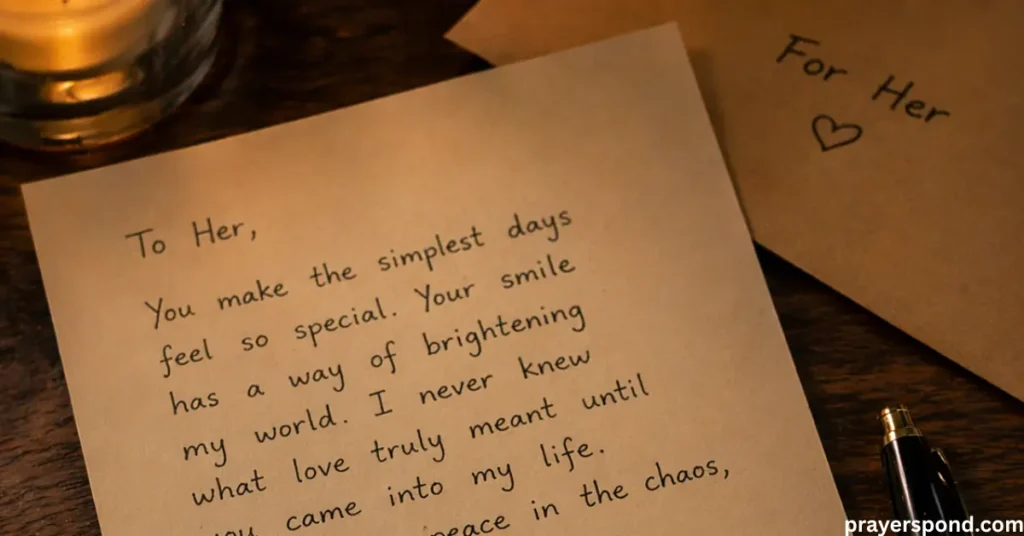 For Her
To Her,
You make the simplest days
feel so special. Your smile
has a way of brightening
my world. I never knew
what love truly meant until
you came into my life.
peace in the chaos,
prayerspond.com